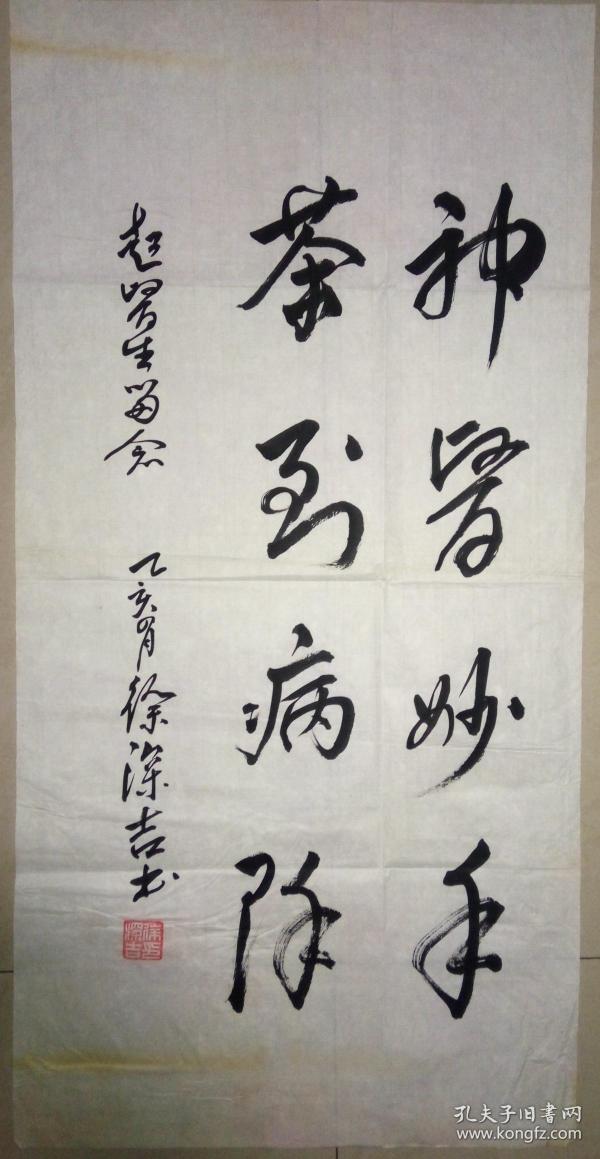 神醫妙手
茶到病除
赵醫生留念
乙亥月徐深吉书
徐深吉印
孔夫子旧書网
www.kongfz.com